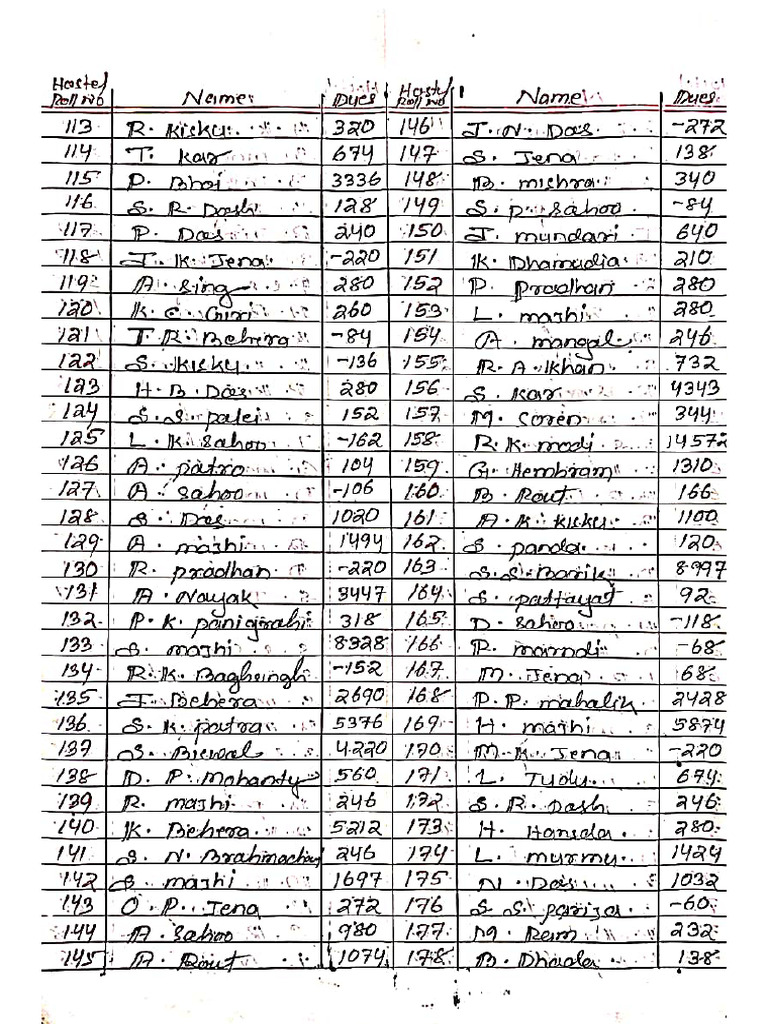 Hostel Roll No Name Dues Hostel Roll No Name Dues
113 R. Kisku 320 146 J. N. Das -272
114 T. Kar 674 147 S. Jena 138
115 P. Bhoi 3336 148 B. Mishra 340
116 S. R. Dash 128 149 S. P. Sahoo -84
117 P. Das 240 150 J. Mundari 640
118 J. K. Jena -220 151 K. Dhamudia 210
119 A. Sing 280 152 P. Pradhan 280
120 K. C. Giri 260 153 L. Majhi 280
121 T. R. Behera -84 154 A. Mangal 246
122 S. Kisku -136 155 R. A. Khan 732
123 H. B. Das 280 156 S. Kar 4343
124 S. S. Palei 152 157 M. Soren 344
125 L. K. Sahoo -162 158 R. K. Modi 14572
126 A. Patro 104 159 G. Hembram 1310
127 A. Sahoo -106 160 B. Rout 166
128 S. Das 1020 161 A. K. Kisku 1100
129 A. Majhi 1494 162 S. Panda 120
130 R. Pradhan -220 163 S. S. Barik 8997
131 A. Nayak 3447 164 S. Pattayat 92
132 P. K. Panigrahi 318 165 D. Sahoo -118
133 S. Majhi 8328 166 R. Marndi -68
134 R. K. Baghsingh -152 167 M. Jena 68
135 J. Behera 2690 168 P. P. Mahalik 2428
136 S. K. Patra 5376 169 H. Majhi 5874
137 S. Biswal 4220 170 M. K. Jena -220
138 D. P. Mohanty 560 171 L. Tudu 674
139 R. Majhi 246 172 S. R. Dash 246
140 K. Behera 5212 173 H. Hansda 280
141 S. N. Brahmachary 246 174 L. Murmu 1424
142 S. Majhi 1697 175 N. Das 1032
143 O. P. Jena 272 176 S. S. Parija -60
144 A. Sahoo 980 177 M. Ram 232
145 A. Rout 1074 178 B. Dhada 138